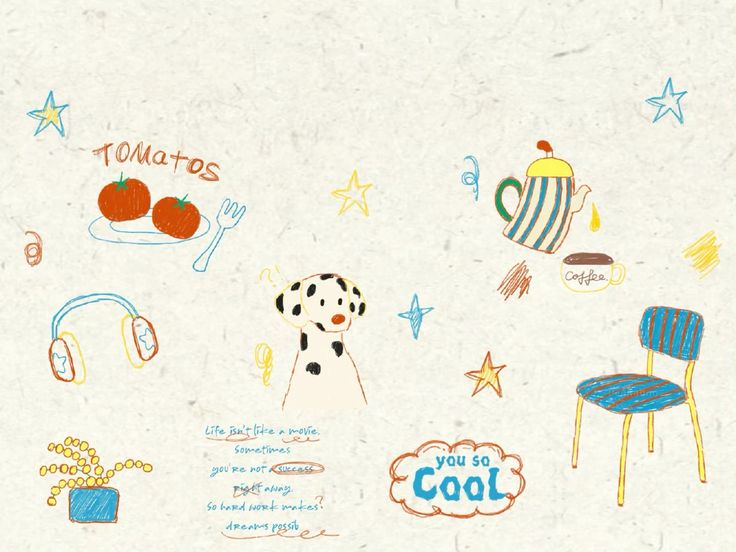 TOMatos
Coffee
Life isn't like a movie.
Sometimes
you're not a success
right away.
So hard work makes?
dreams possib
you so
Cool